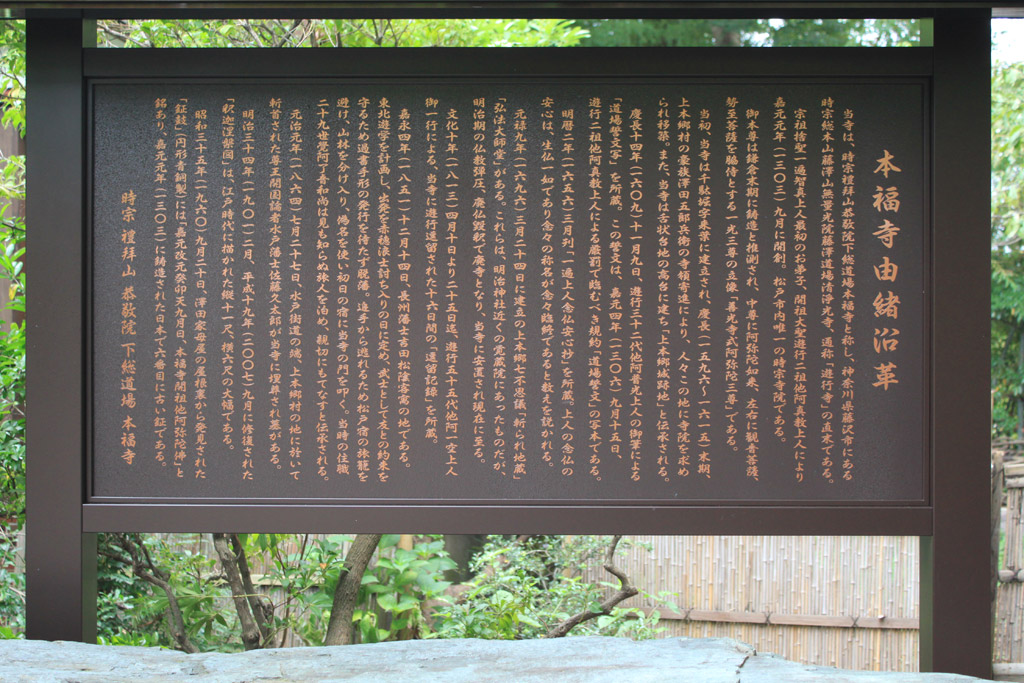 本福寺由緒沿革
当寺は、時宗禮拝山恭敬院下総道場本福寺と称し、神奈川県藤沢市にある
時宗総本山藤澤山無量光院藤澤道場清浄光寺、通称「遊行寺」の直末である。
宗祖捨聖一遍智真上人最初のお弟子、開祖大聖遊行二祖他阿真教上人により
嘉元元年(一三〇三)九月に開創。松戸市内唯一の時宗寺院である。
御本尊は鎌倉末期に鋳造と推測され、中尊に阿弥陀如来、左右に観音菩薩、
勢至菩薩を脇侍とする一光三尊の立像「善光寺式阿弥陀三尊」である。
当初、当寺は千駄堀字東葉に建立され、慶長(一五九六~一六一五)末期、
上本郷村の豪族澤田五郎兵衛の寺領寄進により、人々この地に寺院を求め
られ移築。また、当寺は舌状台地の高台に建ち「上本郷城跡地」と伝承される。
慶長十四年(一六〇九)十一月九日、遊行三十二代他阿普光上人の御筆による
「道場誓文写」を所蔵。この誓文は、嘉元四年(一三〇六)九月十五日、
遊行二祖他阿真教上人による厳罰で臨むべき規約「道場誓文」の写本である。
明暦二年(一六五六)三月刊、「一遍上人念仏安心抄」を所蔵。上人の念仏の
安心は、生仏一如であり念々の称名が念々臨終であると教えを説かれる。
元禄九年(一六九六)三月二十四日に建立の上本郷七不思議「斬られ地蔵」
「弘法大師堂」がある。これらは、明治神社近くの覚蔵院にあったものだが、
明治期の仏教弾圧、廃仏毀釈で廃寺となり、当寺に安置され現在に至る。
文化十年(一八一三)四月十日より二十五日迄、遊行五十五代他阿一空上人
御一行による、当寺に遊行逗留された十六日間の「逗留記録」を所蔵。
嘉永四年(一八五一)十二月十四日、長州藩士吉田松陰寄寓の地である。
東北遊学を計画し、出発を赤穂浪士討ち入りの日に定め、武士として友との約束を
守るため過書手形の発行を待たず脱藩。追手から逃れるため松戸宿の旅籠を
避け、山林を分け入り、偽名を使い初日の宿に当寺の門を叩く。当時の住職
二十九世覚阿了音和尚は見も知らぬ旅人を泊め、親切にもてなすと伝承される。
元治元年(一八六四)七月二十七日、水戸街道の端、上本郷村の地に於いて
斬首された尊王開国論者水戸藩士佐藤久太郎が当寺に埋葬され墓がある。
明治三十四年(一九〇一)二月、平成十九年(二〇〇七)九月に修復された
「釈迦涅槃図」は、江戸時代に描かれた縦十一尺、横六尺の大幅である。
昭和三十五年(一九六〇)九月二十日、澤田家母屋の屋根裏から発見された
「鉦鼓」(円形青銅製)には「嘉元改元癸卯天九月日、本福寺開祖他阿弥陀佛」と
銘あり、嘉元元年(一三〇三)に鋳造された日本で六番目に古い鉦である。
時宗 禮拜山 恭敬院 下総道場 本福寺